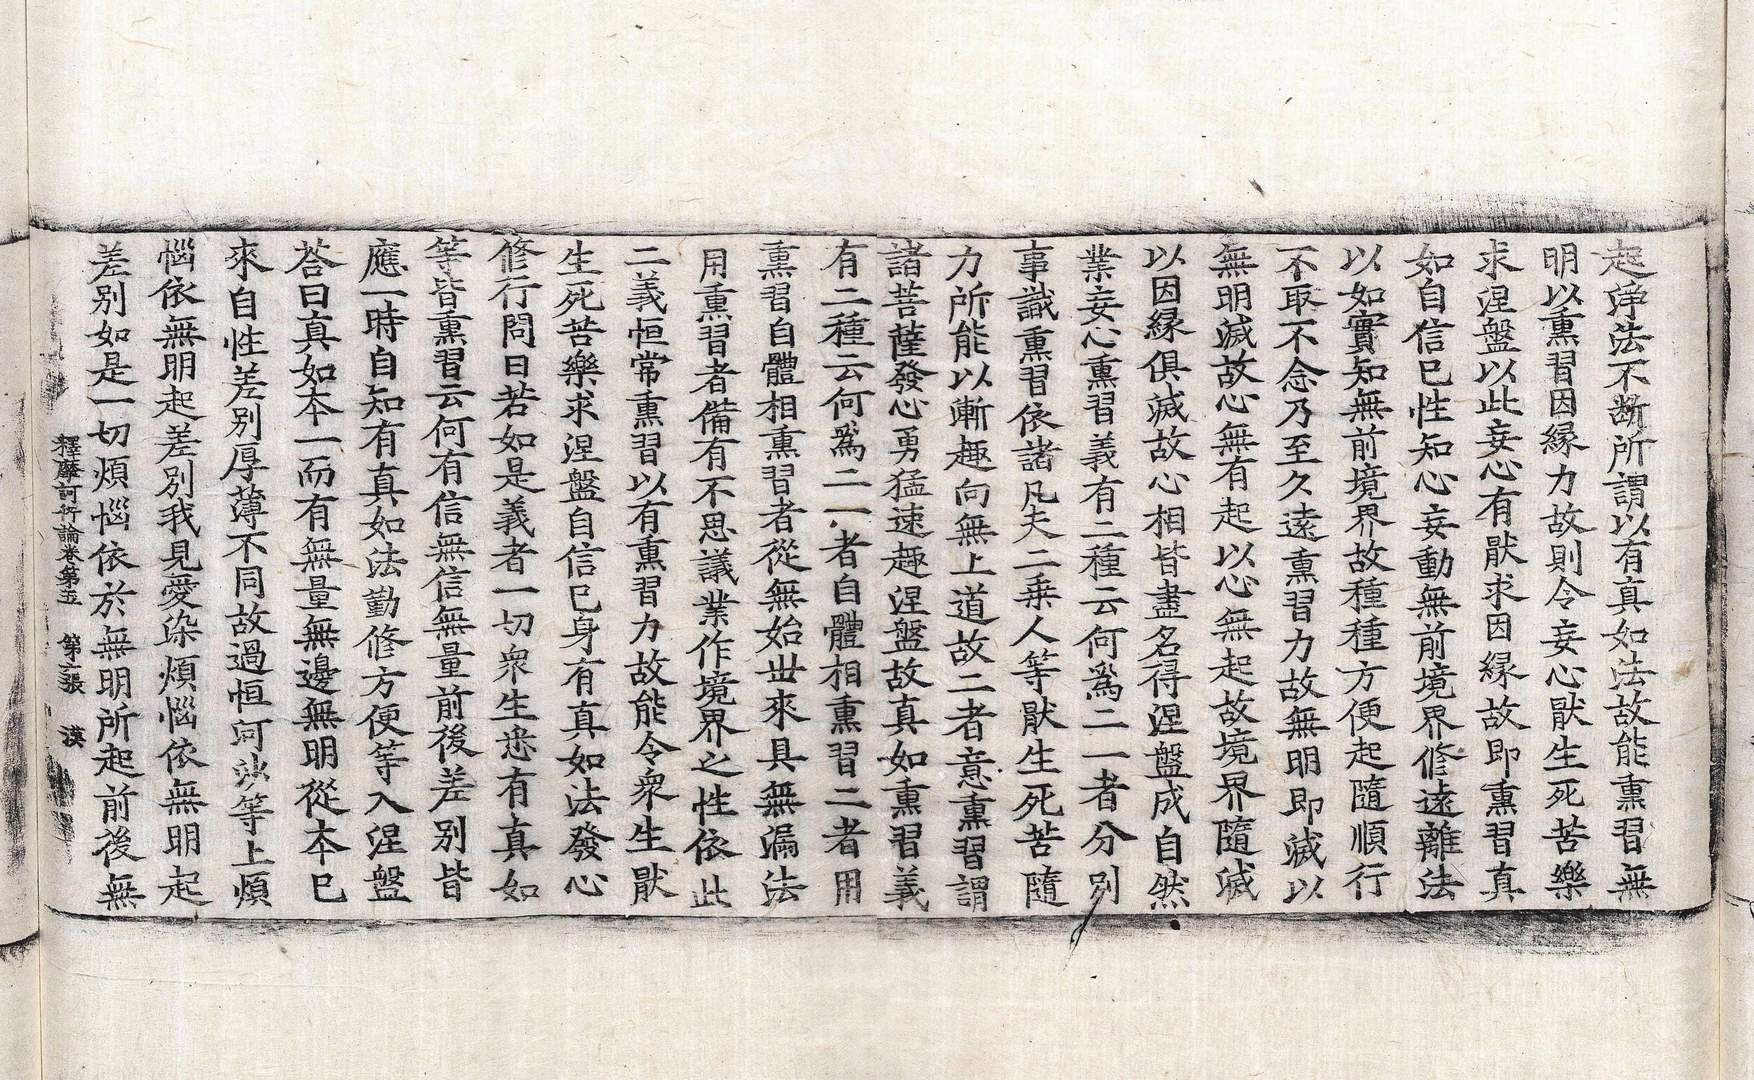 起淨法不断所謂以有真如法故能熏習無
明以熏習因縁力故則令妄心猒生死苦樂
求涅盤以此妄心有猒求因縁故即熏習真
如自信已性知心妄動無前境界修遠離法
以如實知無前境界故種種方便起隨順行
不取不念乃至久遠熏習力故無明即滅以
無明滅故心無有起以心無起故境界隨滅
以因縁俱滅故心相皆盡名得涅盤成自然
業妄心熏習義有二種云何爲二一者分別
事識熏習依諸凡夫二乗人等猒生死苦隨
力所能以漸趣向無上道故二者意熏習謂
諸菩薩發心勇猛速趣涅盤故真如熏習義
有二種云何爲二一者自體相熏習二者用
熏習自體相熏習者從無始世來具無漏法
用熏習者備有不思議業作境界之性依此
二義恒常熏習以有熏習力故能令衆生猒
生死苦樂求涅盤自信已身有真如法發心
修行問曰若如是義者一切衆生悉有真如
等皆熏習云何有信無信無量前後差別皆
應一時自知有真如法勤修方便等入涅盤
荅曰真如夲一而有無量無邊無明從夲已
來自性差別厚薄不同故過恒河沙等上煩
惱依無明起差別我見愛染煩惱依無明起
差別如是一切煩惱依於無明所起前後無
釋摩訶衍論卷第五 第張 漢